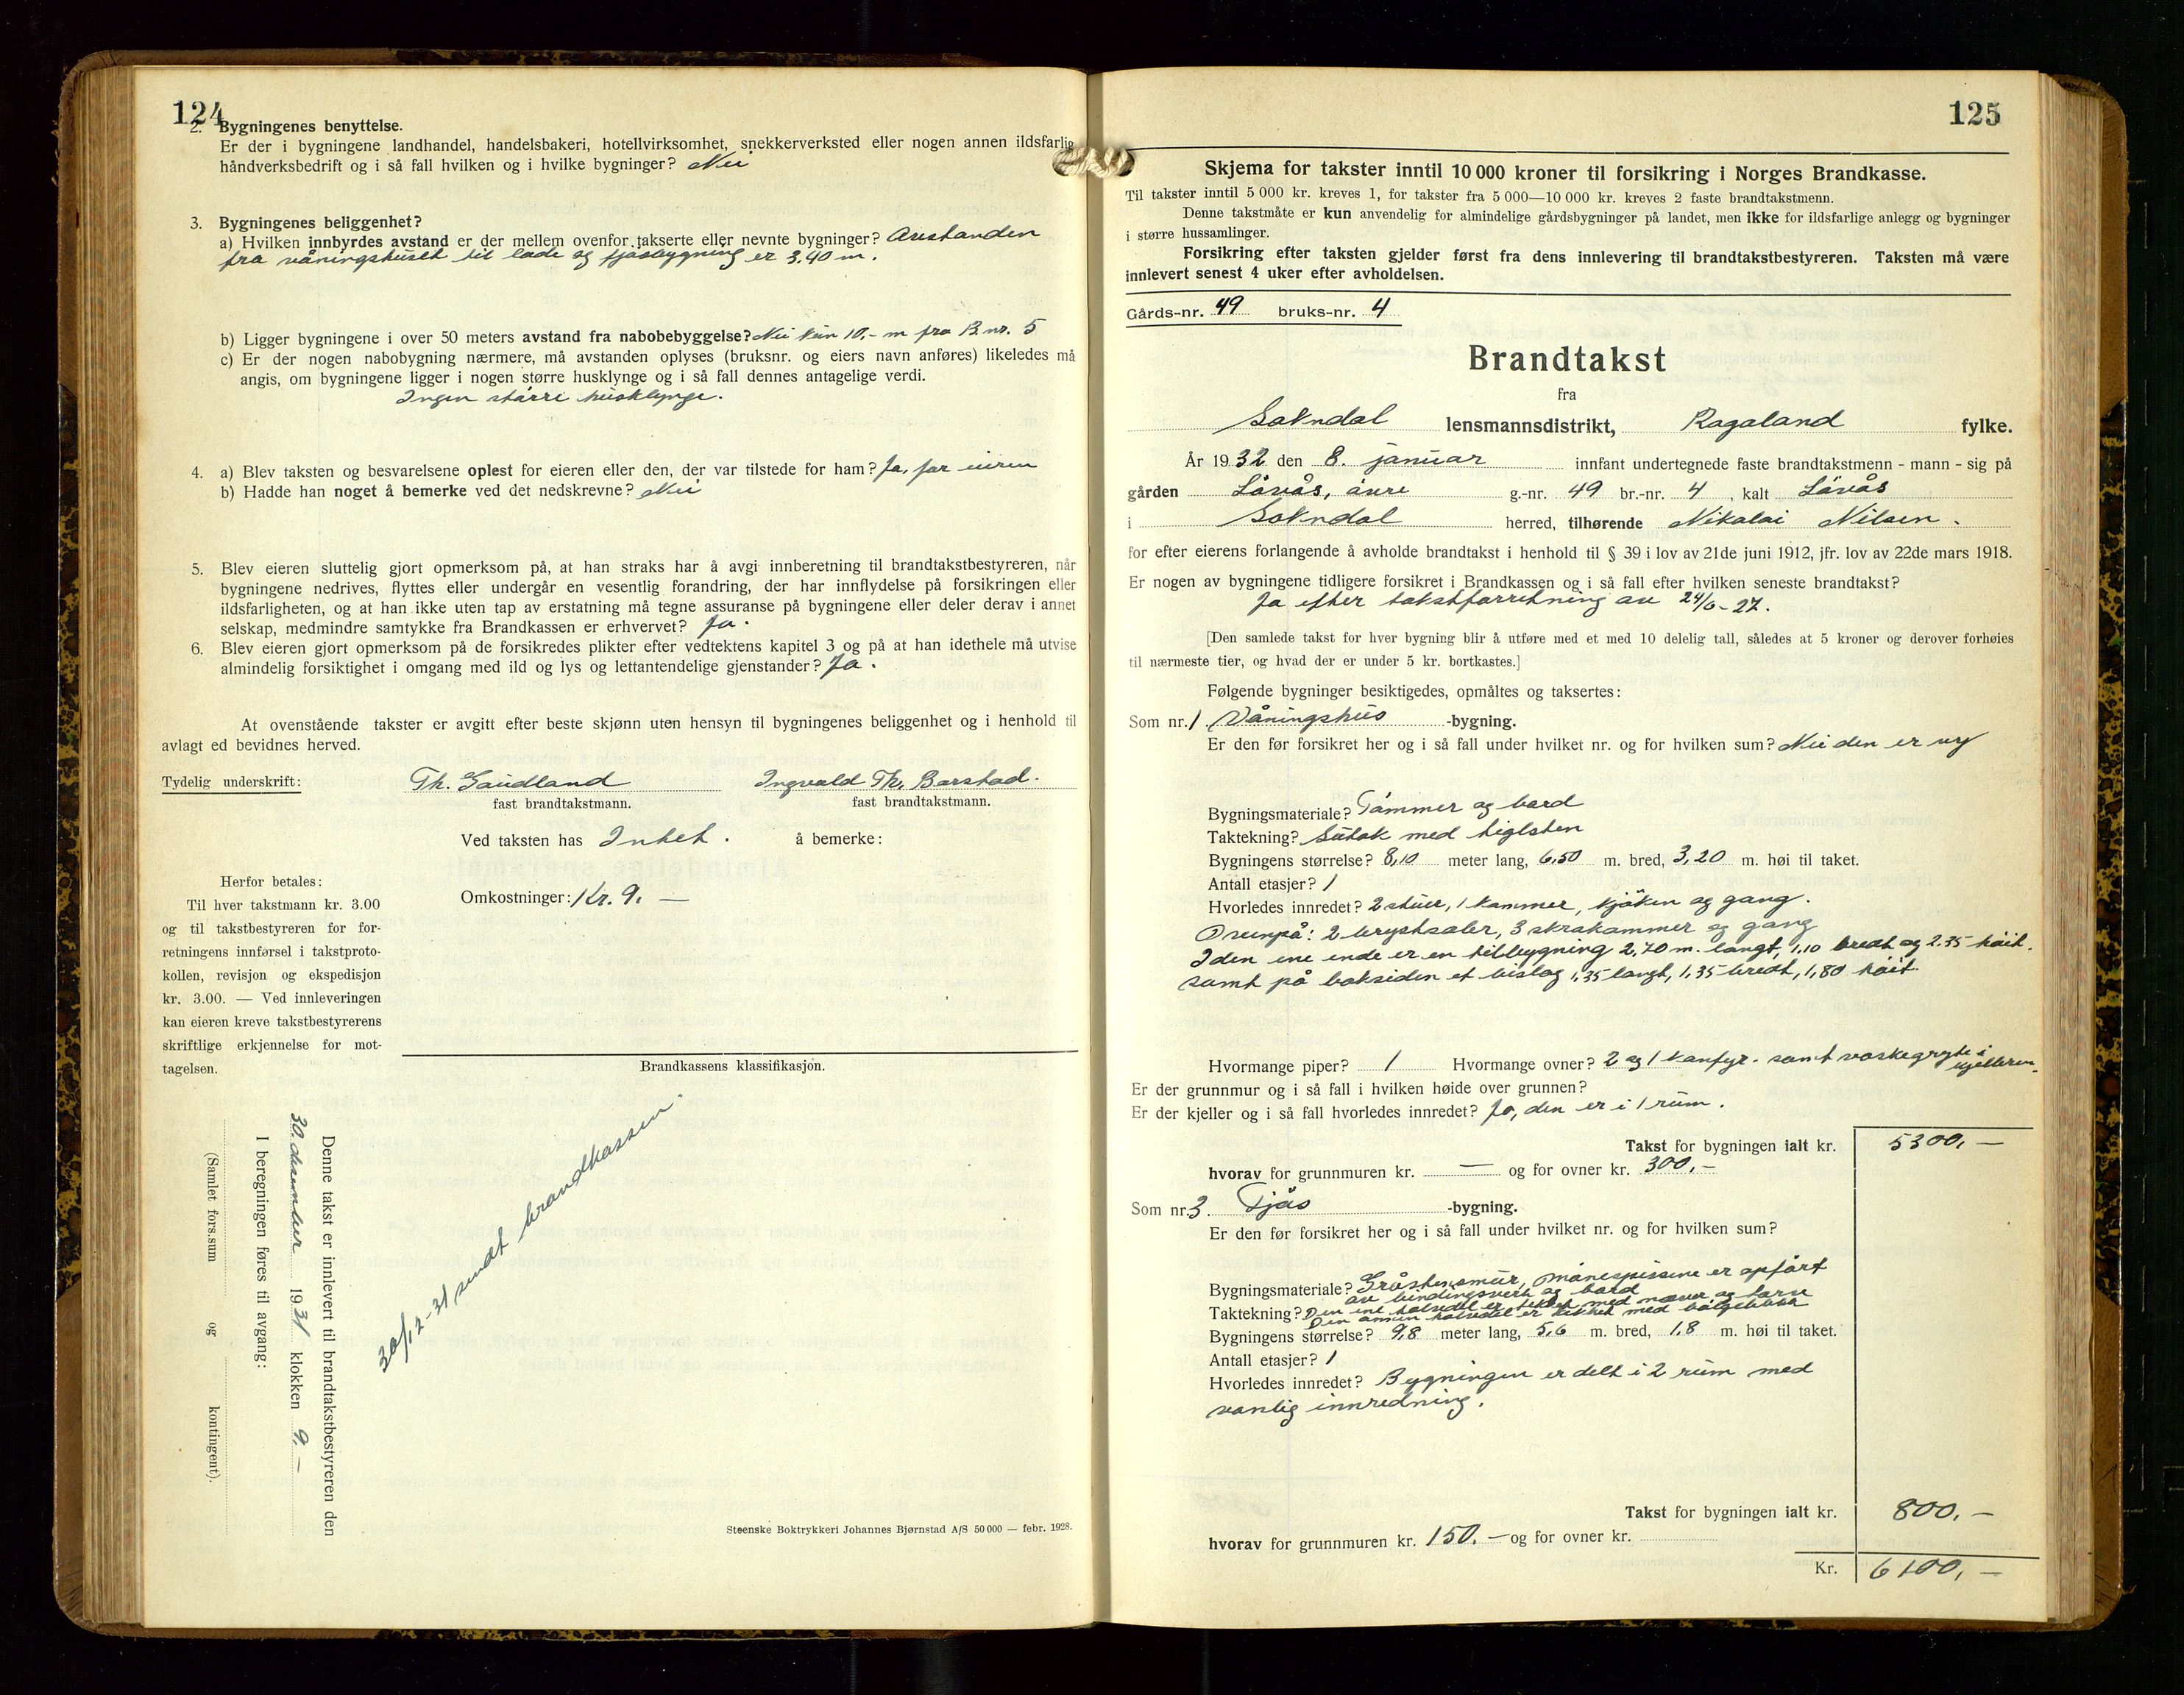 124
2. Bygningenes benyttelse.
Er der i bygningene landhandel, handelsbakeri, hotellvirksomhet, snekkerverksted eller nogen annen ildsfarlig
håndverksbedrift og i så fall hvilken og i hvilke bygninger? Nei
3. Bygningenes beliggenhet?
a) Hvilken innbyrdes avstand er der mellem ovenfor takserte eller nevnte bygninger? Avstanden
fra våningshuset til lade og fjøsbygning er 3,40 m.
b) Ligger bygningene i over 50 meters avstand fra nabobebyggelse? Nei kun 10,- m fra B.nr. 5
c) Er der nogen nabobygning nærmere, må avstanden oplyses (bruksnr. og eiers navn anføres) likeledes må
angis, om bygningene ligger i nogen større husklynge og i så fall dennes antagelige verdi.
Ingen større husklynge.
4. a) Blev taksten og besvarelsene oplest for eieren eller den, der var tilstede for ham? Ja, for eieren
b) Hadde han noget å bemerke ved det nedskrevne? Nei
5. Blev eieren sluttelig gjort opmerksom på, at han straks har å avgi innberetning til brandtakstbestyreren, når
bygningene nedrives, flyttes eller undergår en vesentlig forandring, der har innflydelse på forsikringen eller
ildsfarligheten, og at han ikke uten tap av erstatning må tegne assuranse på bygningene eller deler derav i annet
selskap, medmindre samtykke fra Brandkassen er erhvervet? Ja.
6. Blev eieren gjort opmerksom på de forsikredes plikter efter vedtektens kapitel 3 og på at han idethele må utvise
almindelig forsiktighet i omgang med ild og lys og lettantendelige gjenstander? Ja.
At ovenstående takster er avgitt efter beste skjønn uten hensyn til bygningenes beliggenhet og i henhold til
avlagt ed bevidnes herved.
Tydelig underskrift: Th. Gaudland Ingvald Th. Barstad.
fast brandtakstmann. fast brandtakstmann.
Ved taksten has Intet. å bemerke:
Omkostninger: Kr. 9. —
Herfor betales:
Til hver takstmann kr. 3.00
og til takstbestyreren for for-
retningens innførsel i takstproto-
kollen, revisjon og ekspedisjon
kr. 3.00. — Ved innleveringen
kan eieren kreve takstbestyrerens
skriftlige erkjennelse for mot-
tagelsen.
Brandkassens klassifikasjon.
30/12-31 sendt brandkassen.
Denne takst er innlevert til brandtakstbestyreren den
30. desember 1931 klokken 9. —
I beregningen føres til avgang:
(Samlet fors.sum og kontingent).
Steenske Boktrykkeri Johannes Bjørnstad A/S 50 000 — febr. 1928.
125
Skjema for takster inntil 10 000 kroner til forsikring i Norges Brandkasse.
Til takster inntil 5 000 kr. kreves 1, for takster fra 5 000—10 000 kr. kreves 2 faste brandtakstmenn.
Denne takstmåte er kun anvendelig for almindelige gårdsbygninger på landet, men ikke for ildsfarlige anlegg og bygninger
i større hussamlinger.
Forsikring efter taksten gjelder først fra dens innlevering til brandtakstbestyreren. Taksten må være
innlevert senest 4 uker efter avholdelsen.
Gårds-nr. 49 bruks-nr. 4
Brandtakst
fra
Sokndal lensmannsdistrikt, Rogaland fylke.
År 1932 den 8. januar innfant undertegnede faste brandtakstmenn - mann - sig på
gården Løvås, øvre g.-nr. 49 br.-nr. 4, kalt Løvås
i Sokndal herred, tilhørende Nikolai Nilsen.
for efter eierens forlangende å avholde brandtakst i henhold til § 39 i lov av 21de juni 1912, jfr. lov av 22de mars 1918.
Er nogen av bygningene tidligere forsikret i Brandkassen og i så fall efter hvilken seneste brandtakst?
Ja efter takstforretning av 24/6-27.
[Den samlede takst for hver bygning blir å utføre med et med 10 delelig tall, således at 5 kroner og derover forhøies
til nærmeste tier, og hvad der er under 5 kr. bortkastes.]
Følgende bygninger besiktigedes, opmåltes og taksertes:
Som nr. 1. Våningshus -bygning.
Er den før forsikret her og i så fall under hvilket nr. og for hvilken sum? Nei den er ny
Bygningsmateriale? Tømmer og bord
Taktekning? Sutak med tiglsten
Bygningens størrelse? 8,10 meter lang, 6,50 m. bred, 3,20 m. høi til taket.
Antall etasjer? 1
Hvorledes innredet? 2 stuer, 1 kammer, kjøken og gang.
Ovenpå: 2 brystsaler, 3 skråkammer og gang
I den ene ende er en tilbygning 2,70 m. langt, 1,10 bredt og 2.35 høit.
samt på baksiden et bislag 1,35 langt, 1,35 bredt, 1,80 høit.
Hvormange piper? 1 Hvormange ovner? 2 og 1 komfyr. samt vaskegryte i
kjelleren.
Er der grunnmur og i så fall i hvilken høide over grunnen?
Er der kjeller og i så fall hvorledes innredet? Ja, den er i 1 rum.
Takst for bygningen ialt kr. 5300,—
hvorav for grunnmuren kr. — og for ovner kr. 300,—
Som nr. 3. Fjøs -bygning.
Er den før forsikret her og i så fall under hvilket nr. og for hvilken sum?
Bygningsmateriale? Gråstensmur, mønespissene er opført
av bindingsverk og bord
Taktekning? Den ene halvdel er tekket med never og torve
Den annen halvdel er tekket med bølgeblikk
Bygningens størrelse? 9,8 meter lang, 5,6 m. bred, 1,8 m. høi til taket.
Antall etasjer? 1
Hvorledes innredet? Bygningen er delt i 2 rum med
vanlig innredning.
Takst for bygningen ialt kr. 800,—
hvorav for grunnmuren kr. 150.— og for ovner kr.
Kr. 6100,—